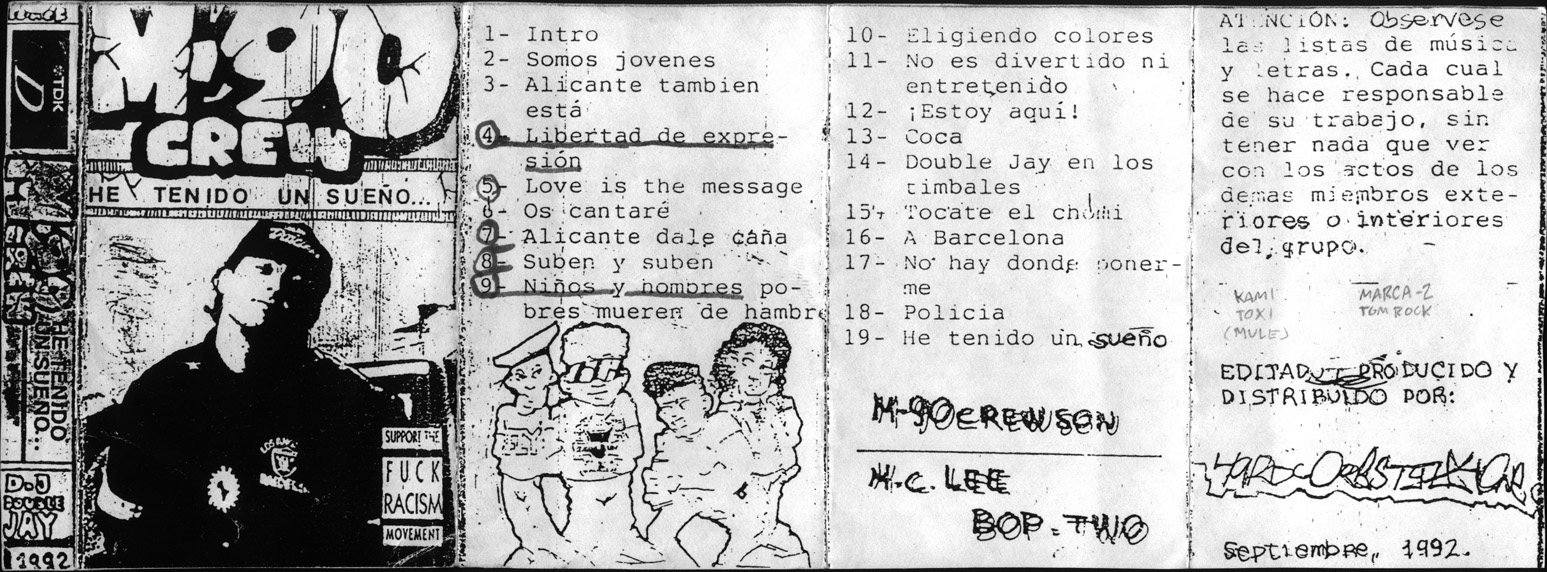 TDK
D
M.90
CREW
HE TENIDO
UN SUEÑO...
D.J
DOUBLE
JAY
1992
M.90
CREW
HE TENIDO UN SUEÑO...
LOS ANGELES
RAIDERS
SUPPORT THE
FUCK
RACISM
MOVEMENT
1- Intro
2- Somos jovenes
3- Alicante tambien
está
4- Libertad de expre-
sión
5- Love is the message
6- Os cantaré
7- Alicante dale caña
8- Suben y suben
9- Niños y hombres po-
bres mueren de hambre
10- Eligiendo colores
11- No es divertido ni
entretenido
12- ¡Estoy aquí!
13- Coca
14- Double Jay en los
timbales
15- Tocate el chomi
16- A Barcelona
17- No hay donde poner-
me
18- Policia
19- He tenido un sueño
M-90 CREW SON
M.C. LEE
BOP-TWO
ATENCIÓN: Observese
las listas de música
y letras. Cada cual
se hace responsable
de su trabajo, sin
tener nada que ver
con los actos de los
demas miembros exte-
riores o interiores
del grupo.
KAMI MARCA-2
TOXI TOMROCK
(MULE)
EDITADO PRODUCIDO Y
DISTRIBUIDO POR:
Septiembre, 1992.